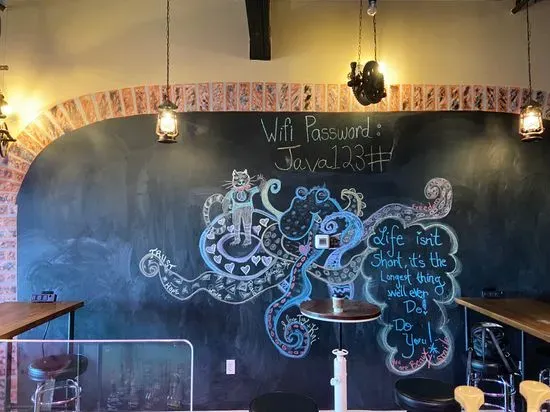 Wifi Password:
Java123#
Freedom
TRUST
Life isn't
Short, it's the
Longest thing
we'll ever
Do!
Do
You!